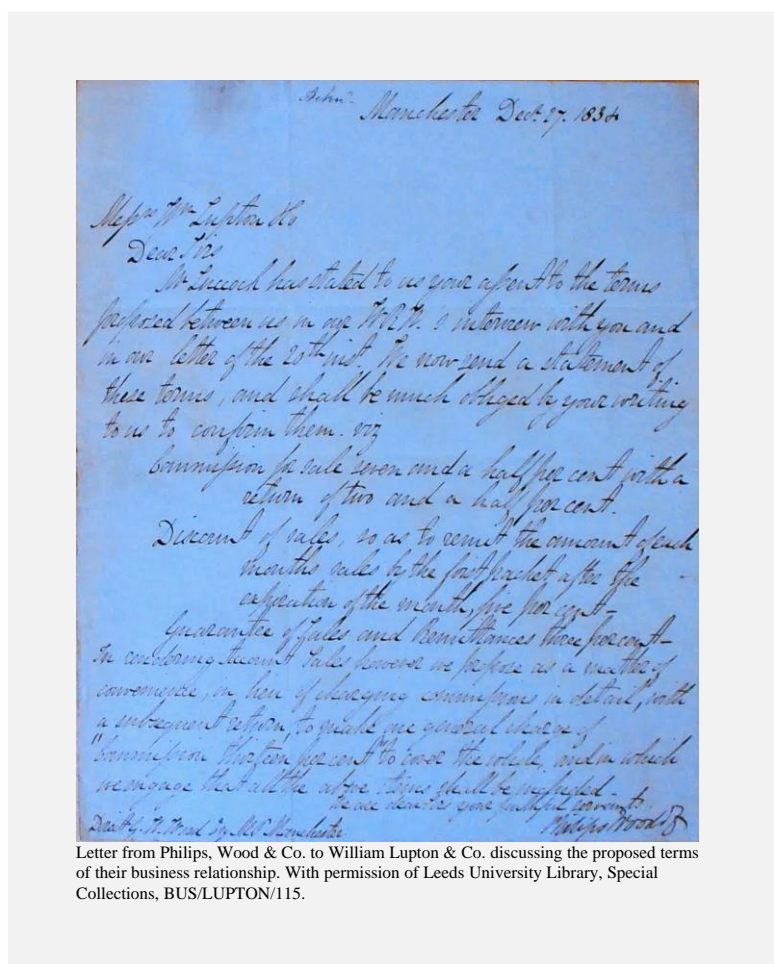 Manchester Dect. 27. 1834
Messrs Wm Lupton & Co
Dear Sirs
Mr Luccock has stated to us your assent to the terms
proposed between us in our interview with you and
in our letter of the 20th inst. We now send a statement of
these terms, and shall be much obliged by your writing
to us to confirm them. viz
Commission for sale seven and a half per cent with a
return of two and a half per cent.
Discount of sales, so as to remit the amount of each
months sales by the first packet after the
expiration of the month, five per cent –
Guarantee of Sales and Remittances three per cent –
In rendering Account Sales however we propose as a matter of
convenience, in lieu of charging commissions in detail, with
a subsequent return, to make one general charge of
"Commission thirteen per cent" to cover the whole, and in which
we engage that all the above terms shall be included –
We are dear sirs your faithful servants
Direct G. W. Wood Esq M.P. Manchester
Philips Wood & Co
Letter from Philips, Wood & Co. to William Lupton & Co. discussing the proposed terms
of their business relationship. With permission of Leeds University Library, Special
Collections, BUS/LUPTON/115.